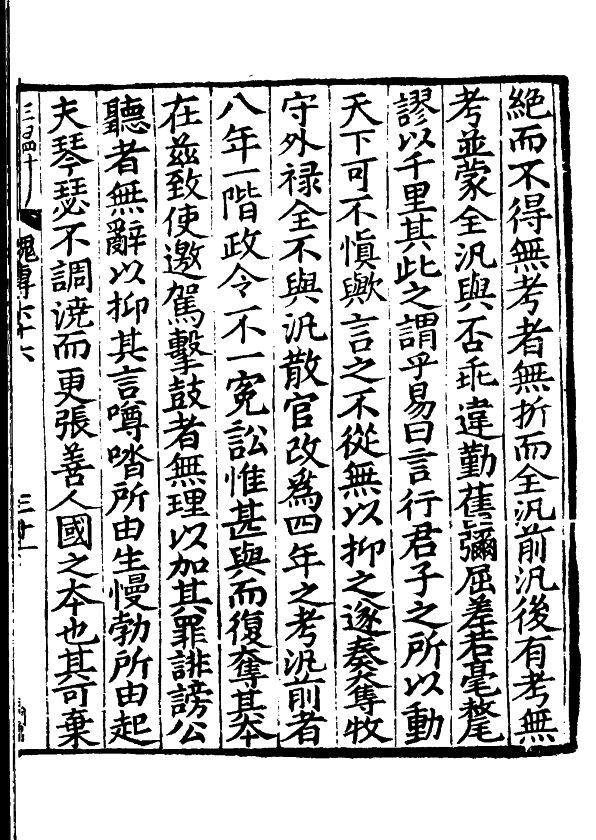 絕而不得無考者無折而全汎前汎後有考無
考並蒙全汎與否乖違勤舊彌屈差若毫氂
謬以千里其此之謂乎易曰言行君子之所以動
天下可不慎歟言之不從無以抑之遂奏奪牧
守外禄全不與汎散官改爲四年之考汎前者
八年一階政令不一冤訟惟甚與而復奪其本
在兹致使邀駕擊鼓者無理以加其罪誹謗公
聽者無辭以抑其言噂㳫所由生慢勃所由起
夫琴瑟不調澆而更張善人國之夲也其可棄
三四十
魏傳六十六
三十一